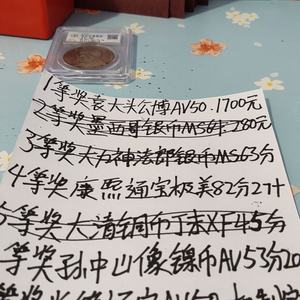 1等奖袁大头公博AV50.1700元
2等奖墨西哥银币MS64.280元
3等奖大力神法郎银币MS63分
4等奖康熙通宝极美82分27十
5等奖大清铜币丁未XF45分
等奖孙中山像镍币AV53分20